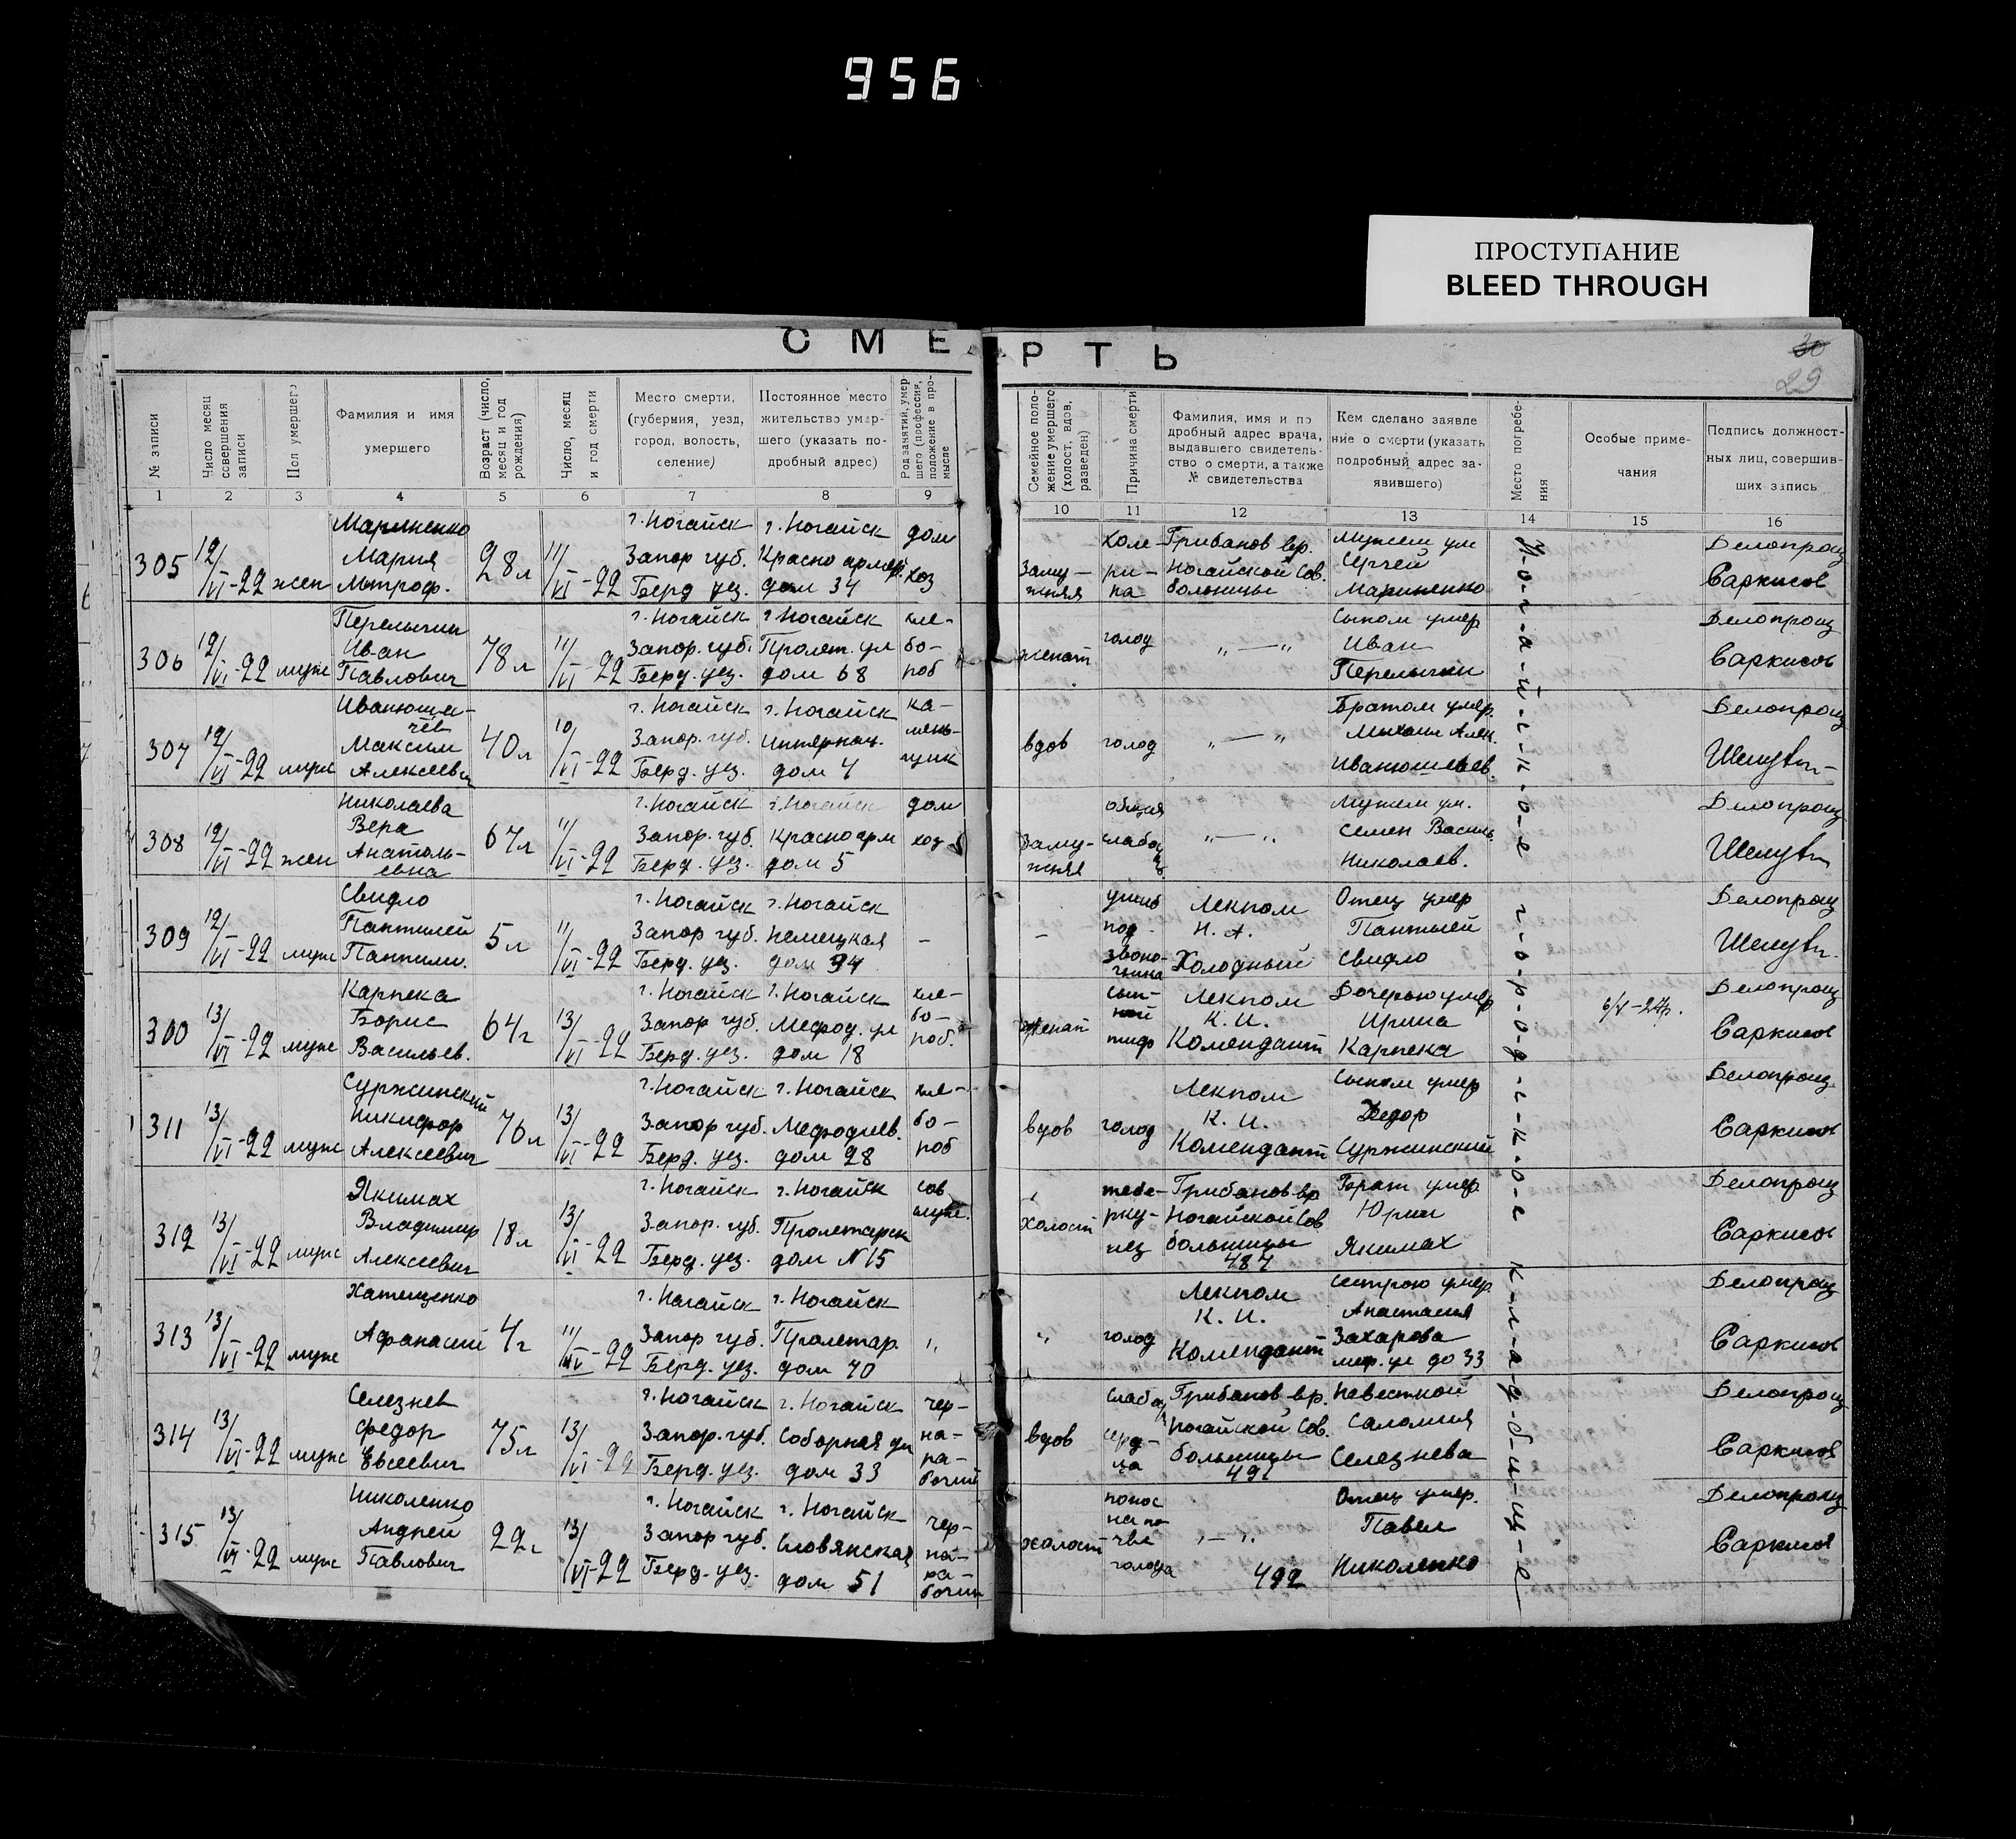 956
ПРОСТУПАНИЕ
BLEED THROUGH
СМЕРТЬ
30
29
№ записи
Число месяц совершения записи
Пол умершего
Фамилия и имя умершего
Возраст (число, месяц и год рождения)
Число, месяц и год смерти
Место смерти, (губерния, уезд, город, волость, селение)
Постоянное место жительство умершего (указать подробный адрес)
Род занятий, умершего (профессия, положение в промысле
Семейное положение умершего (холост, вдов, разведен)
Причина смерти
Фамилия, имя и подробный адрес врача, выдавшего свидетельство о смерти, а также № свидетельства
Кем сделано заявление о смерти (указать подробный адрес заявившего)
Место погребения
Особые примечания
Подпись должностных лиц, совершивших запись
1 2 3 4 5 6 7 8 9 10 11 12 13 14 15 16
305 12/VI-22 жен
Мариненко
Мария
Митроф.
28 л 11/VI-22
г. Ногайск
Запор губ.
Берд уез.
г. Ногайск
Красно армер.
дом 34
дом
хоз
Заму-
жняя
холе-
ри-
на
Грибанов вр.
Ногайской Сов.
больницы
Мужем ум
Сергей
Мариненко
Делопроиз
Саркисов
306 12/VI-22 муж
Перелыгин
Иван
Павлович
78 л 11/VI-22
г. Ногайск
Запор. губ.
Берд. уез.
г. Ногайск
Пролет. ул
дом 68
хле-
бо-
роб
женат
голод
„ — „
Сыном умер
Иван
Перелыгин
Делопроиз
Саркисов
307 12/VI-22 муж
Иванюша-
чев
Максим
Алексеевич
40 л 10/VI-22
г. Ногайск
Запор. губ.
Берд. уез.
г. Ногайск
Интернац.
дом 4
ка-
мень-
щик
вдов
голод
„ — „
Братом умер.
Михаил Алек.
Делопроиз
308 12/VI-22 жен
Николаева
Вера
Анатоль-
евна
67 л 11/VI-22
г. Ногайск
Запор. губ.
Берд. уез.
г. Ногайск
Красноарм
дом 5
дом
хоз
Заму-
жняя
общая
слабос
„ — „
Мужем ум.
Семен Василь.
Николаев.
Делопроиз
309 12/VI-22 муж
Свидло
Пантилей
Пантилим.
5 л 11/VI-22
г. Ногайск
Запор губ.
Берд. уез.
г. Ногайск
Немецкая
дом 34
–
–
ушиб
под-
звоно-
чника
Лекпом
Н. А.
Холодный
Отец умер
Пантилей
Свидло
Делопроиз
300 13/VI-22 муж
Карпека
Борис
Васильев.
64 г 13/VI-22
г. Ногайск
Запор губ.
Берд. уез.
г. Ногайск
Мефод. ул
дом 18
хле-
бо-
роб.
Женат
сып-
ной
тиф
Лекпом
К. И.
Комендант
Дочерью умер
Ирина
Карпека
6/V-24р.
Делопроиз
Саркисов
311 13/VI-22 муж
Суржинский
Никифор
Алексеевич
76 л 13/VI-22
г. Ногайск
Запор губ.
Берд. уез.
г. Ногайск
Мефодиев.
дом 28
хле-
бо-
роб
вдов
голод
Лекпом
К. И.
Комендант
Сыном умер
Федор
Суржинский
Делопроиз.
Саркисов
312 13/VI-22 муж
Якимах
Владимир
Алексеевич
18 л 13/VI-22
г. Ногайск
Запор. губ.
Берд. уез.
г. Ногайск
Пролетарск
дом N 15
сов
служ.
холост
тебе-
рку-
лез
Грибанов вр
Ногайской Сов
больницы
487
Брат умер
Юрий
Якимах
Делопроиз
Саркисов
313 13/VI-22 муж
Хатещенко
Афанасий
4 г 11/VI-22
г. Ногайск
Запор губ.
Берд. уез.
г. Ногайск
Пролетар.
дом 70
„
„
голод
Лекпом
К. И.
Комендант
Сестрою умер.
Анастасия
Захарова
меф. ул до 33
Делопроиз
Саркисов
314 13/VI-22 муж
Селезнев
Федор
Евсеевич
75 л 13/VI-22
г. Ногайск
Запор. губ.
Берд. уез.
г. Ногайск
Соборная ул
дом 33
чер-
но-
ра-
бочий
вдов
слабос
серд-
ца
Грибанов вр.
Ногайской Сов.
больницы
491
Невесткой
Саломия
Селезнева
Делопроиз
Саркисов
315 13/VI-22 муж
Николенко
Андрей
Павлович
22 г 13/VI-22
г. Ногайск
Запор губ.
Берд. уез.
г. Ногайск
Словянская
дом 51
чер-
но-
ра-
бочий
холост
понос
на по
чве
голода
„ — „
492
Отец умер.
Павел
Николенко
Делопроиз
Саркисов
Н-о-г-а-й-с-к-о-е г-о-р-о-д-с-к-о-е к-л-а-д-б-и-щ-е